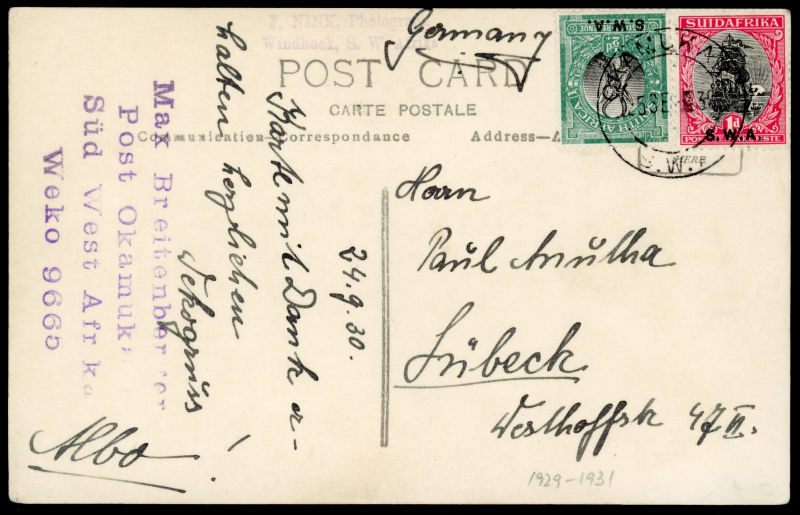 F. NINK, Photogra
Windhoek, S. W. Afrika
Germany
POST CARD
CARTE POSTALE
Communication—Correspondance
Address—A
S.W.A.
SOUTH AFRICA
SUIDAFRIKA
1d
S.W.A
HERE
S.W.
24.9.30.
Karte mit Dank er-
halten herzlichen
Wekogruss
!
Albo
Max Breitenber er
Post Okamuk
Süd West Afr ka
Weko 9665
Herrn
Paul
Lübeck
47 II.
1929-1931